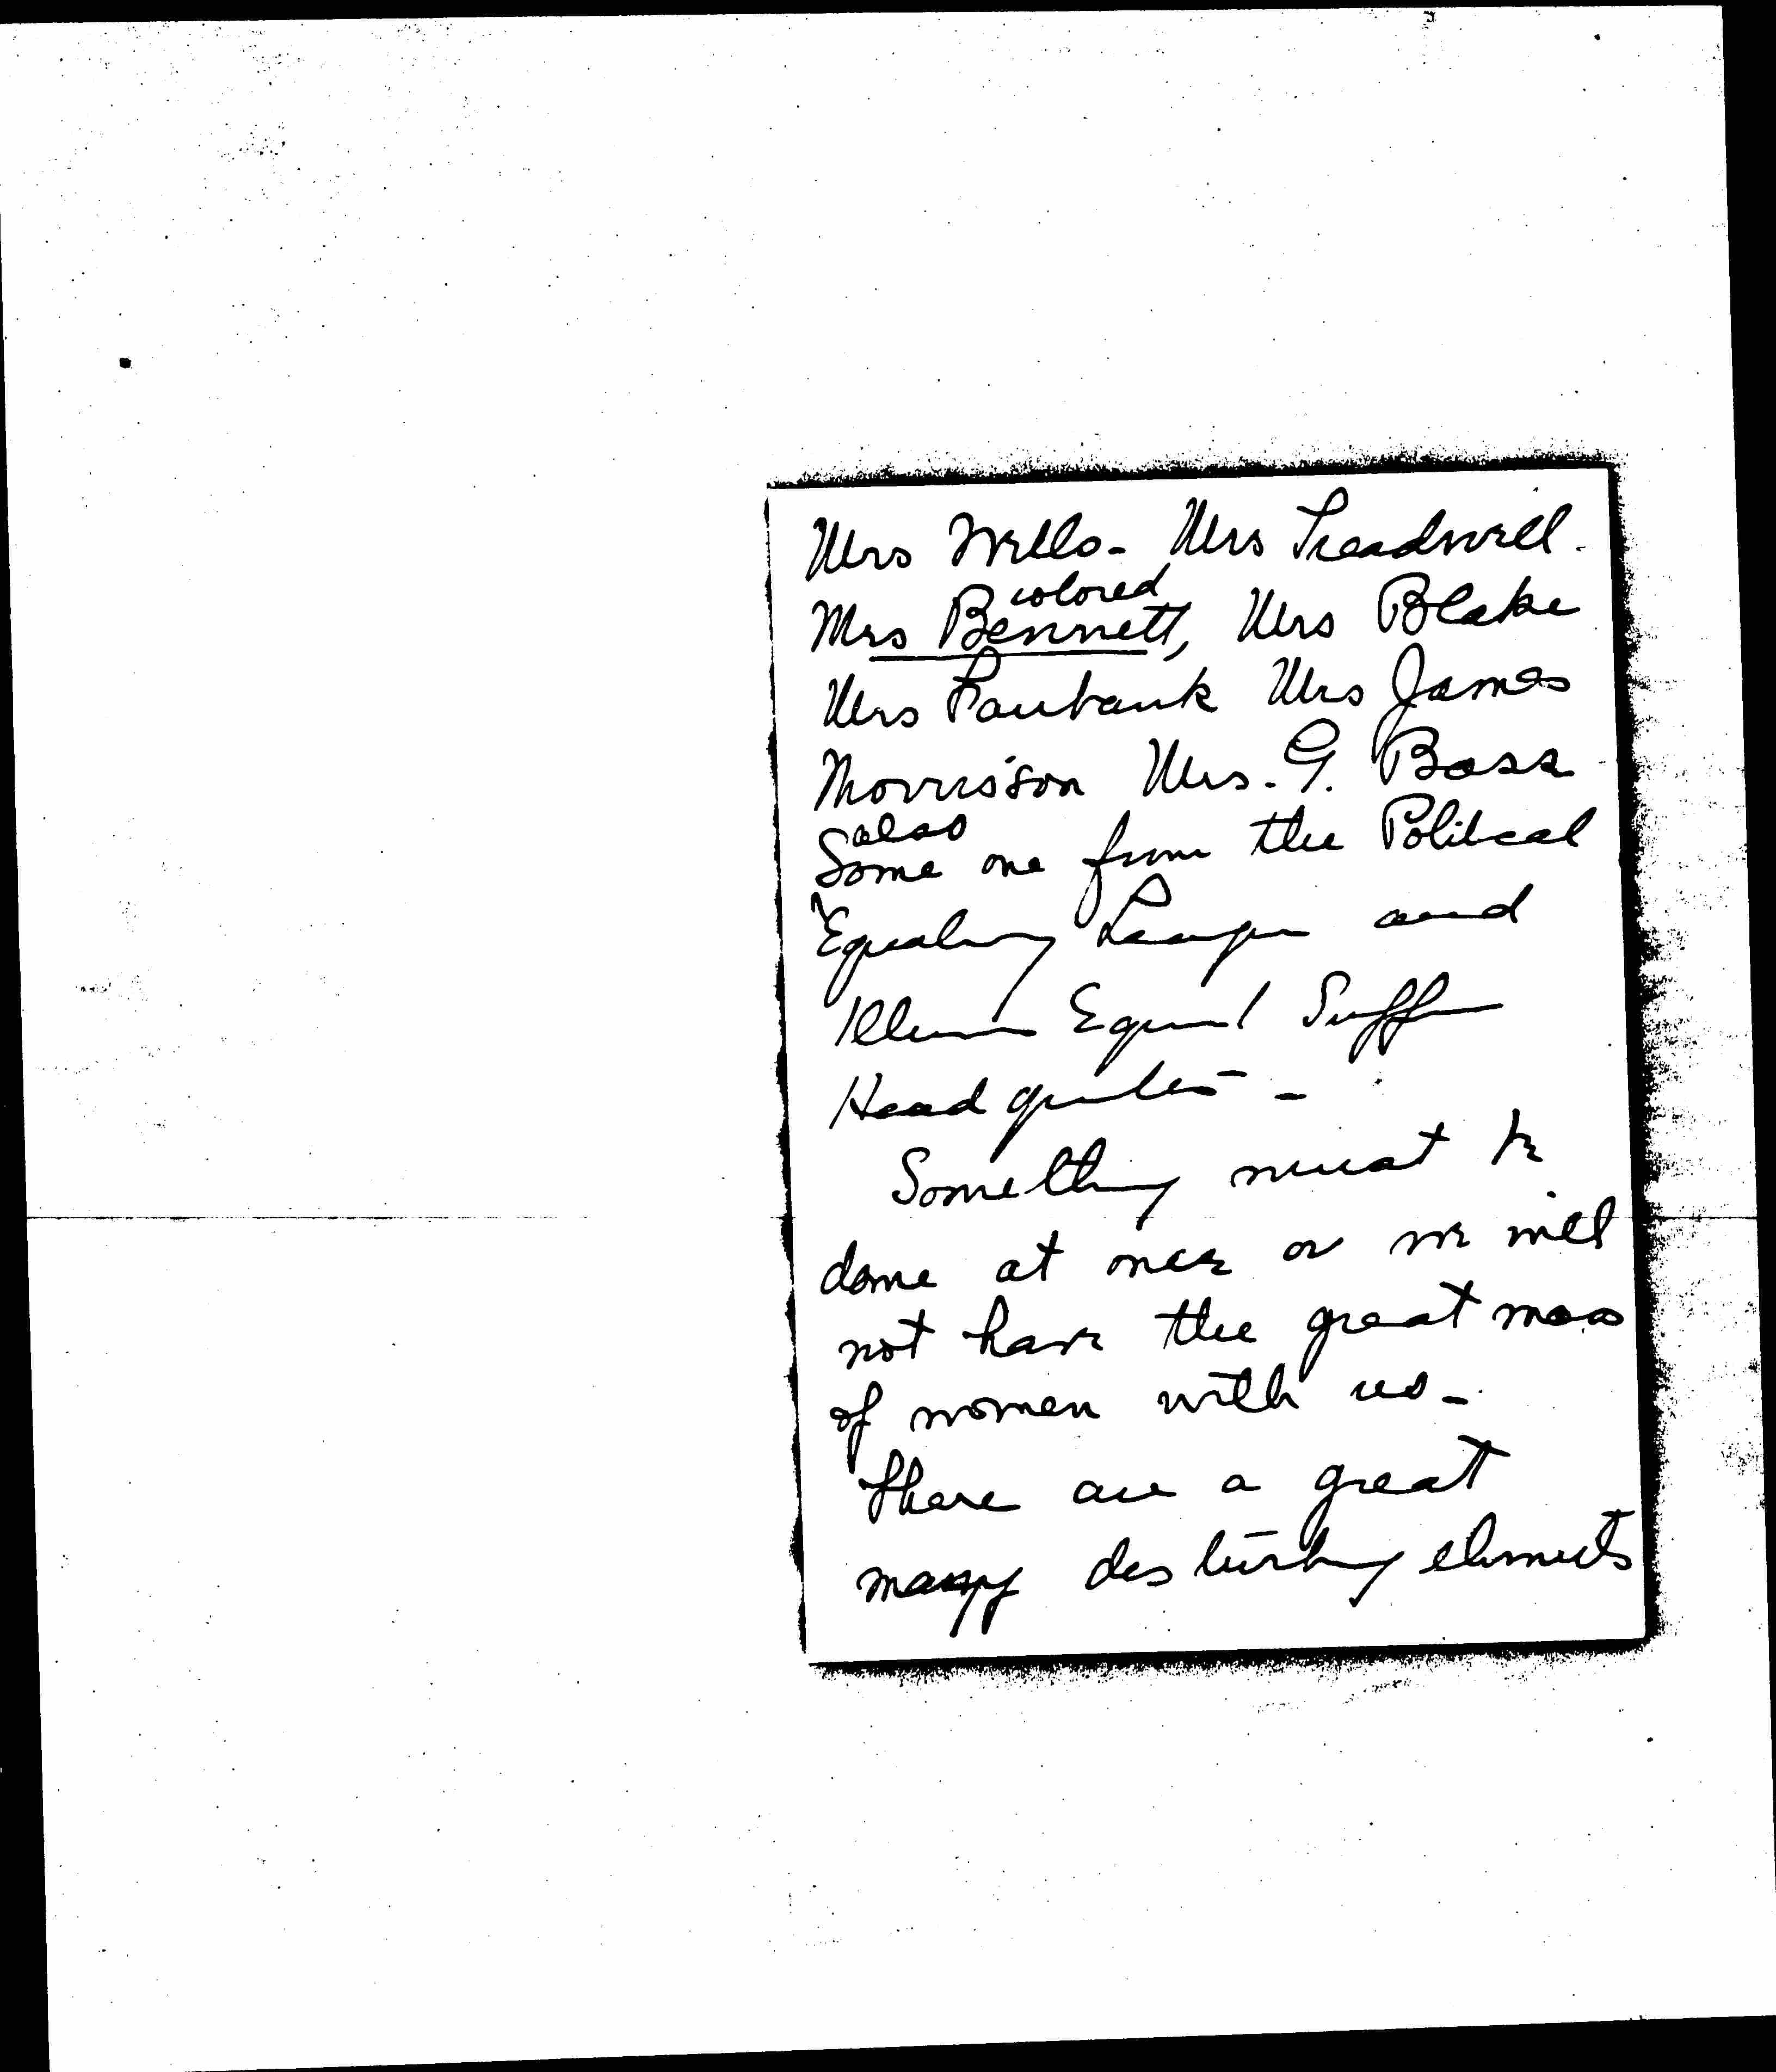 Mrs Wells - Mrs Treadwell.
colored
Mrs Bennett, Mrs Blake
Mrs Fairbank Mrs James
Morrisson Mrs. G. Bass
also
Some one from the Political
Equality League and
Illinois Equal Suffrage
Headquarters -
Something must be
done at once or we will
not have the great mass
of women with us -
There are a great
many disturbing elements